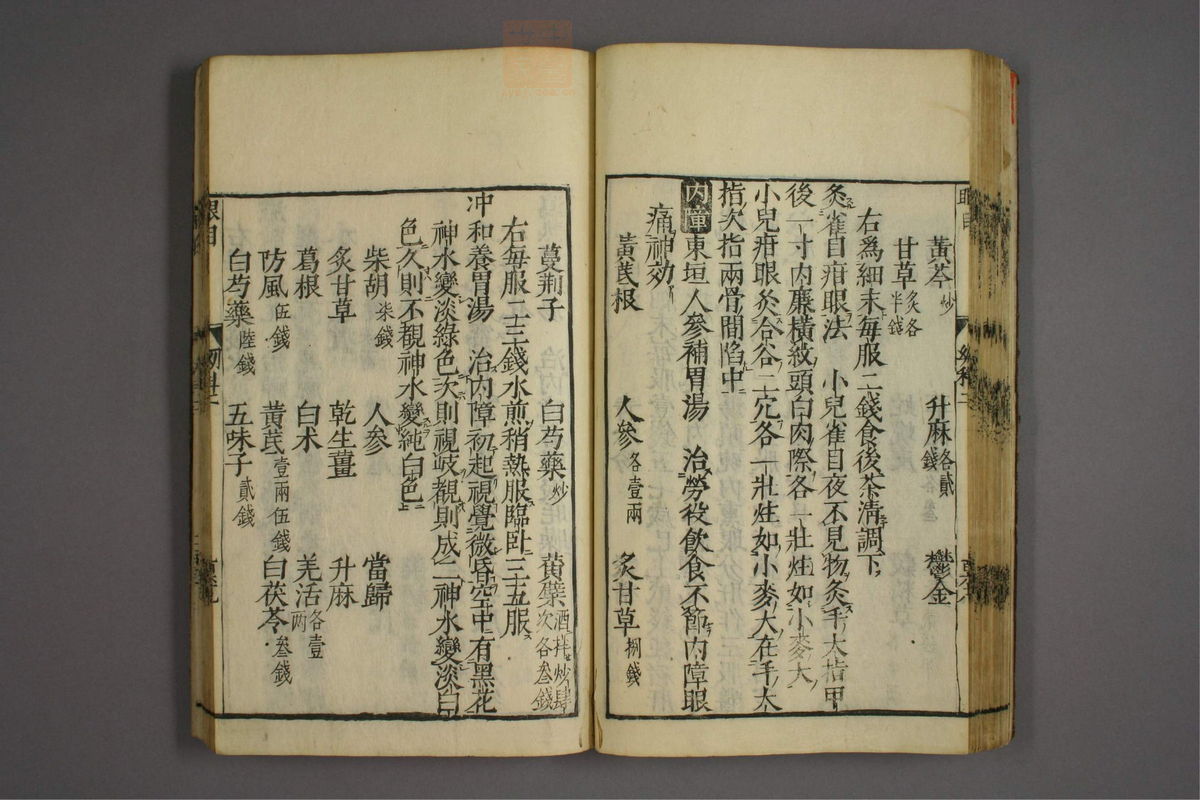 黃芩炒 升麻各貳錢 鬱金
甘草炙各半錢
右爲細末每服二錢食後茶淸調下
灸雀目疳眼法 小兒雀目夜不見物灸手大指甲
後一寸內廉橫紋頭白肉際各一壯炷如小麥大
小兒疳眼灸合谷二穴各一壯炷如小麥大在手大
指次指兩骨間陷中
內障東垣人參補胃湯 治勞役飲食不節內障眼
痛神効
黃芪根 人參各壹兩 炙甘草捌錢
蔓荊子 白芍藥炒 黃蘗酒拌炒肆次各叁錢
右每服二三錢水煎稍熱服臨臥三五服
冲和養胃湯 治內障初起視覺微昏空中有黑花
神水變淡綠色次則視岐覩則成二神水變淡白
色久則不覩神水變純白色
柴胡柒錢 人參 當歸
炙甘草 乾生薑 升麻
葛根 白朮 羌活各壹兩
防風伍錢 黃芪壹兩伍錢 白茯苓叁錢
白芍藥陸錢 五味子貳錢
眼目 幼科二